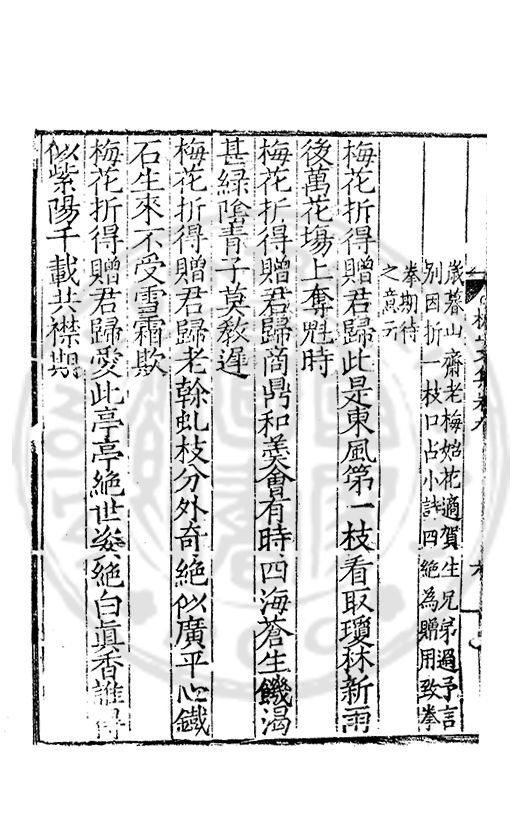 歲暮山齋老梅始花適賀生兄弟過予言
別因折一枝口占小詩四絕為贈用致拳
拳期待
之意云
梅花折得贈君歸此是東風第一枝看取瓊林新雨
後萬花塲上奪魁時
梅花折得贈君歸商鼎和羮會有時四海蒼生饑渴
甚綠陰青子莫教遲
梅花折得贈君歸老榦虬枝分外奇絕似廣平心鐵
石生來不受雪霜欺
梅花折得贈君歸愛此亭亭絕世姿絕白真香誰得
似紫陽千載共襟期